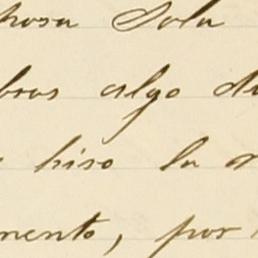 hosa Sola
bras algo di
hiso la
mento, por